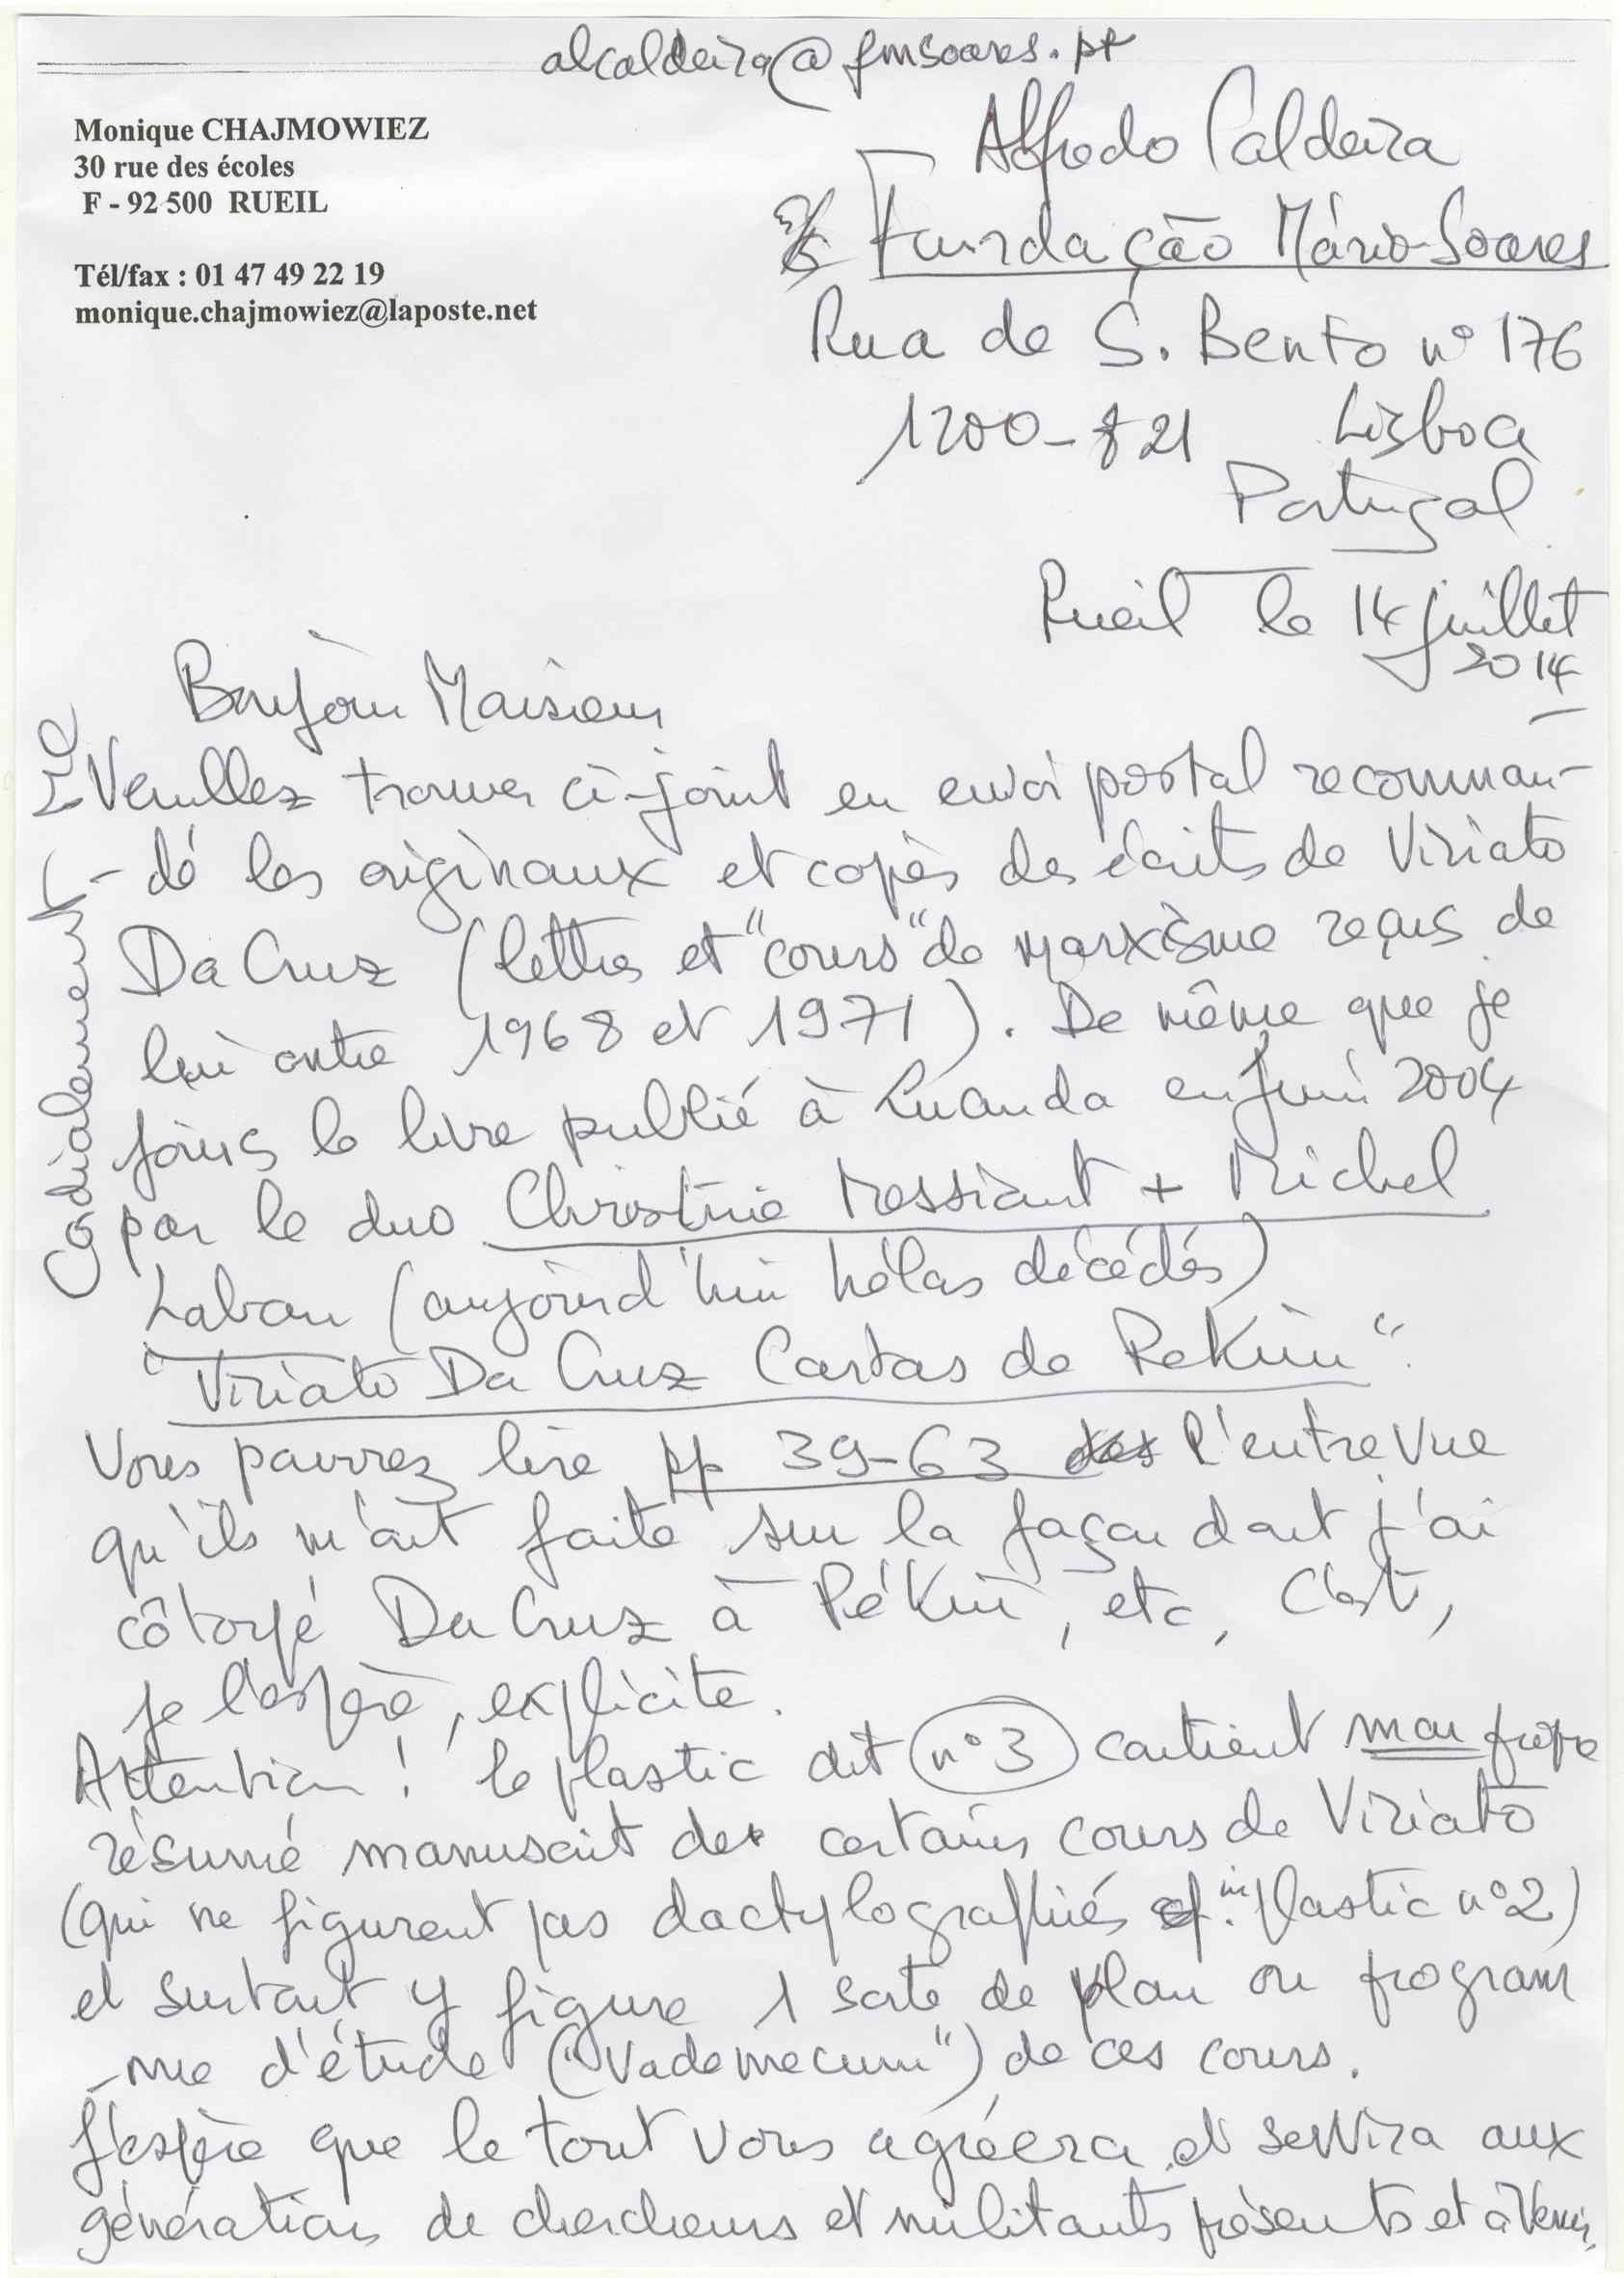 alcaldeira@fmsoares.pt
Monique CHAJMOWIEZ
30 rue des écoles
F - 92 500 RUEIL
Tél/fax : 01 47 49 22 19
monique.chajmowiez@laposte.net
Alfredo Caldeira
Fundação Mário Soares
Rua de S. Bento nº 176
1200-821 Lisboa
Portugal
Rueil le 14 juillet
2014
Bonjour Monsieur
Veuillez trouver ci-joint en envoi postal recomman-
-dé les originaux et copies des écrits de Viriato
Da Cruz (lettres et "cours" de marxisme reçus de
lui entre 1968 et 1971). De même que je
joins le livre publié à Luanda en Juin 2004
par le duo Christine Messiant + Michel
Laban (aujourd'hui hélas décédés)
"Viriato Da Cruz Cartas de Pekin".
Vous pourrez lire pp 39-63 l'entrevue
qu'ils m'ont faite sur la façon dont j'ai
côtoyé Da Cruz à Pékin, etc, C'est,
je l'espère, explicite.
Attention ! le plastic dit n°3 contient mon propre
résumé manuscrit de certains cours de Viriato
(qui ne figurent pas dactylographiés in plastic n°2)
et surtout y figure 1 sorte de plan ou program
-me d'étude ("Vademecum") de ces cours.
J'espère que le tout vous agréera et servira aux
générations de chercheurs et militants présents et à venir.
Cordialement